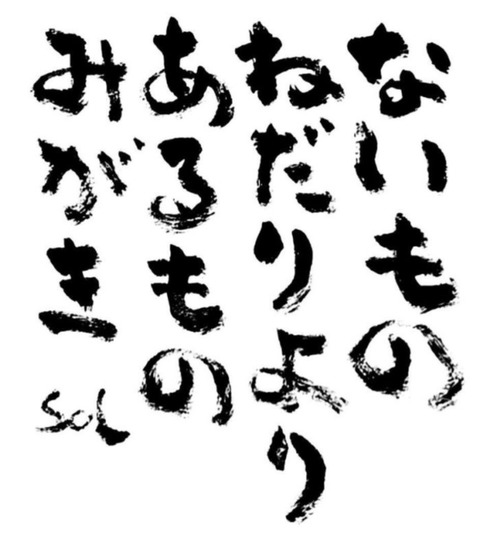 ないもの
ねだりより
あるもの
みがき
SOL